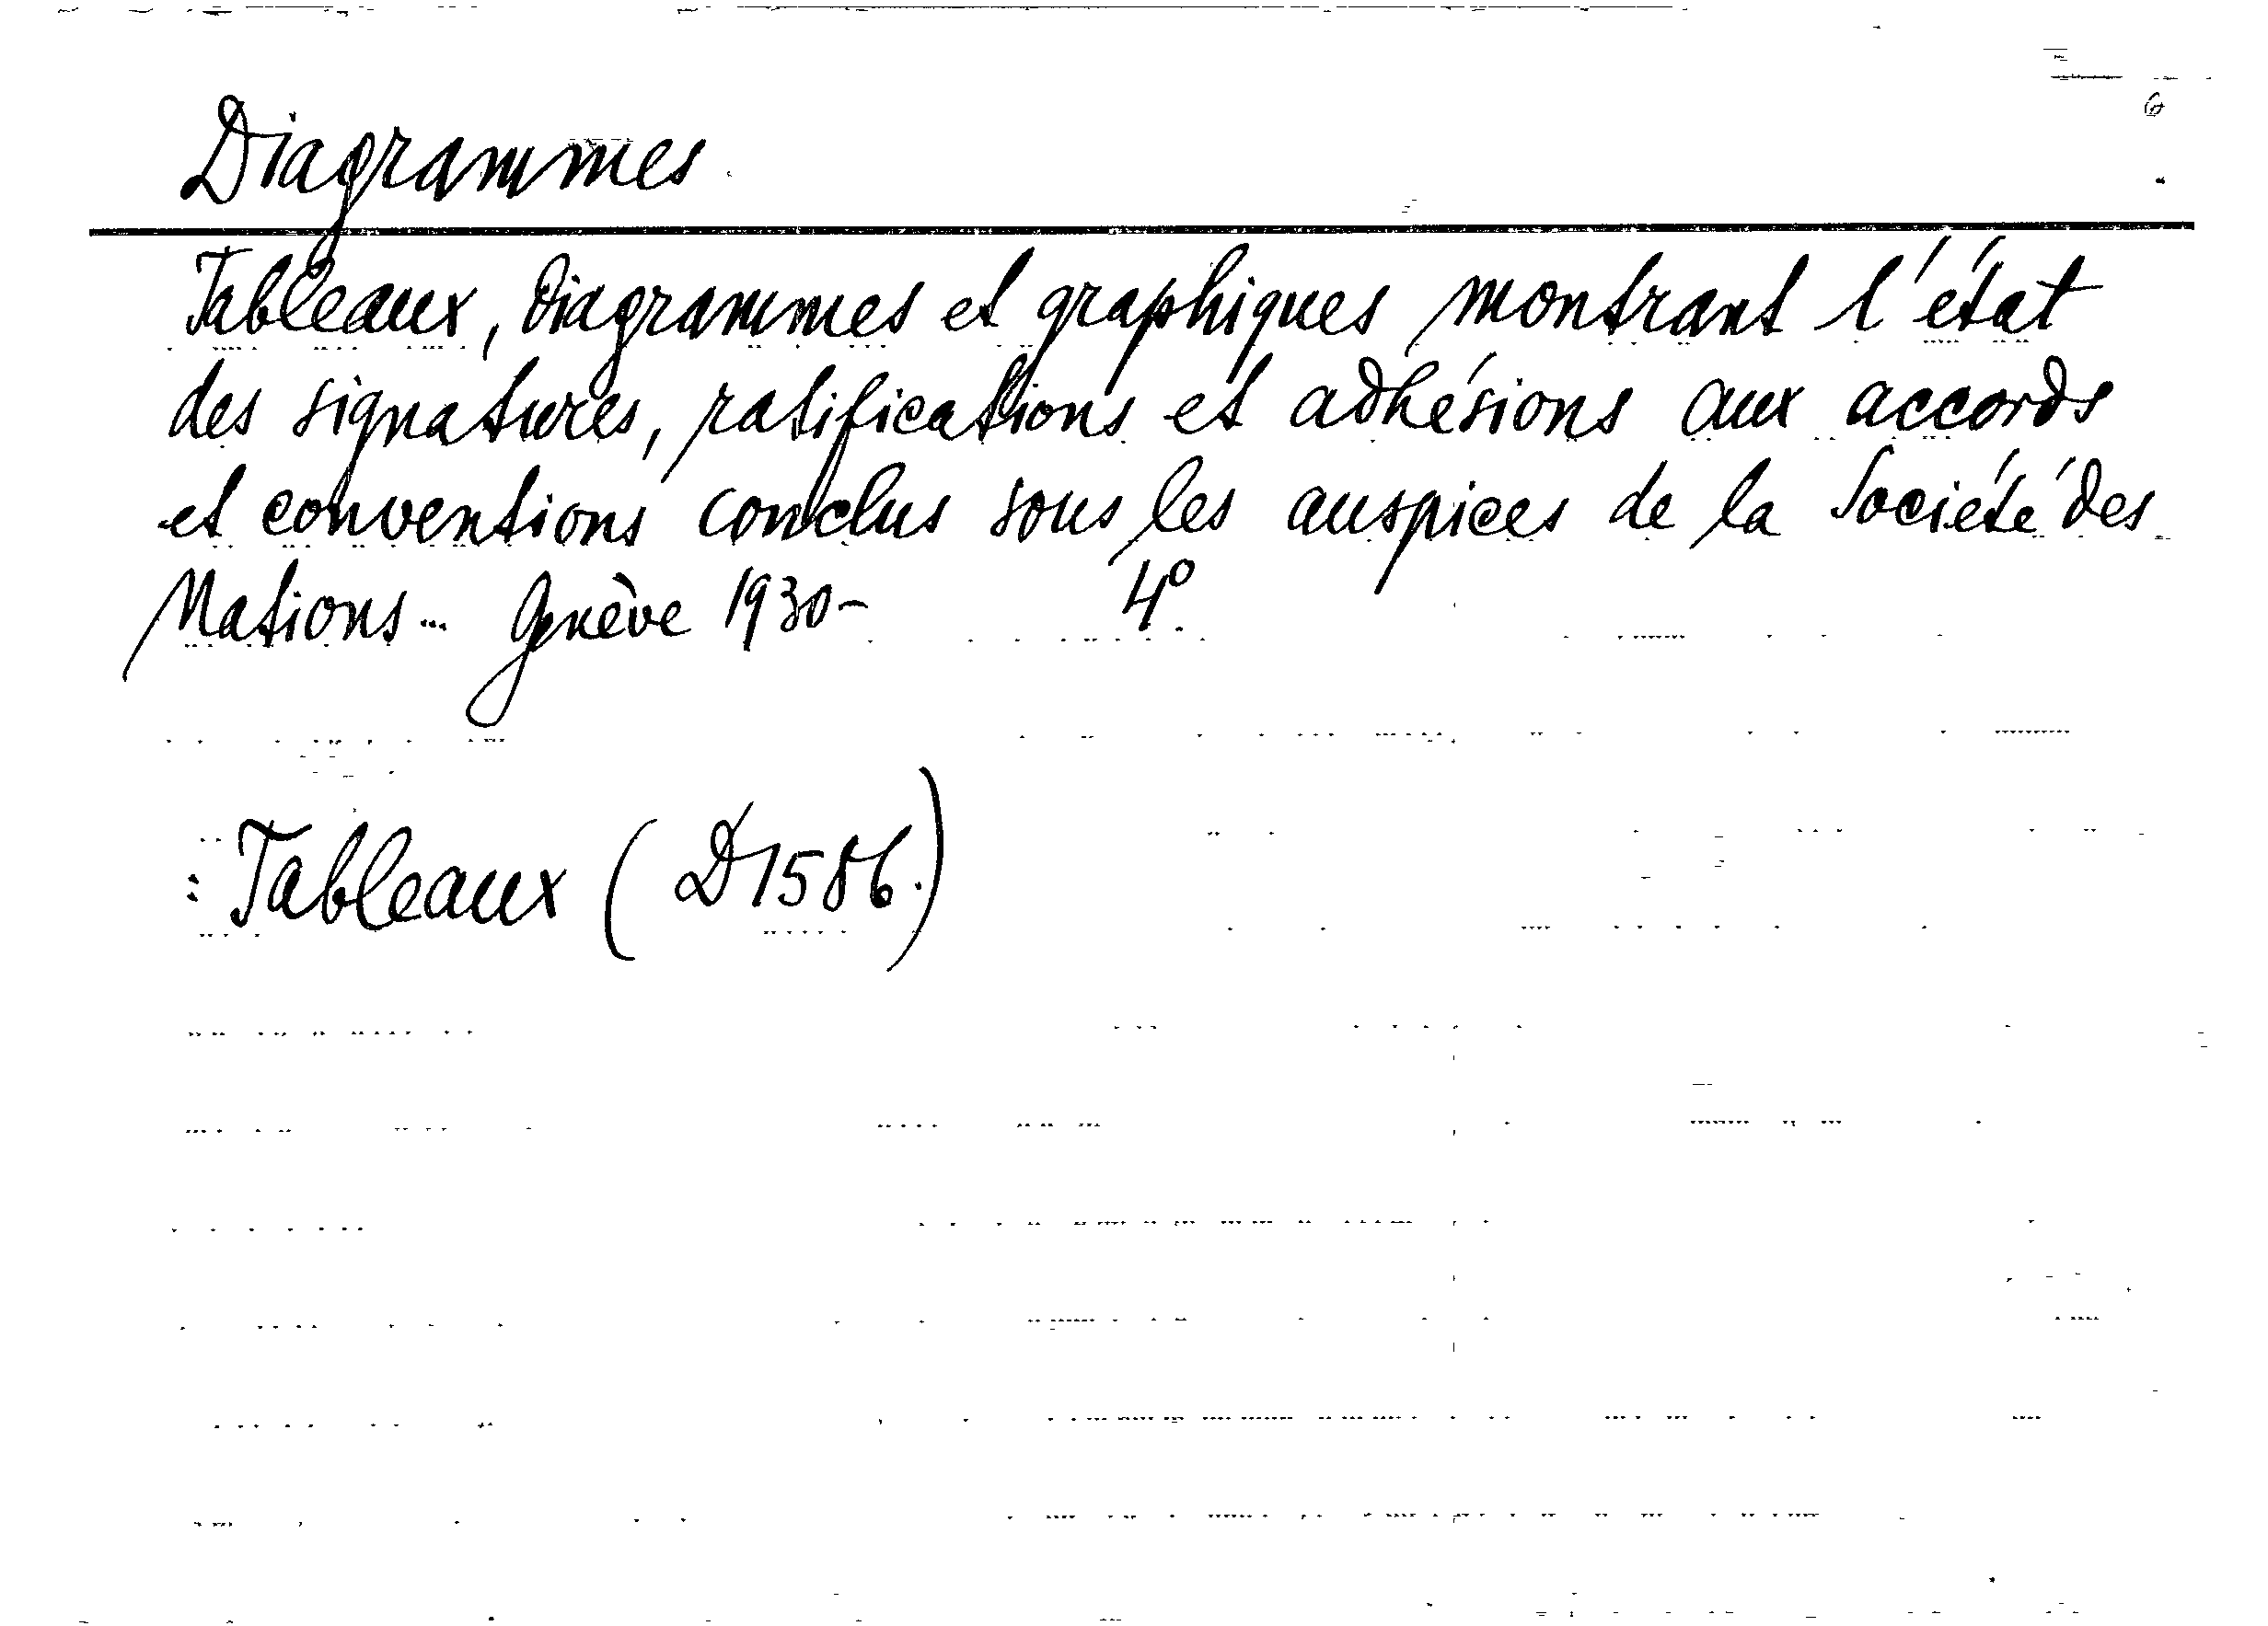 Diagrammes
Tableaux, diagrammes et graphiques montrant l'état
des signatures, ratifications et adhésions aux accords
et conventions conclus sous les auspices de la Société des
Nations... Genève 1930- 4°
: Tableaux ( D1586.)